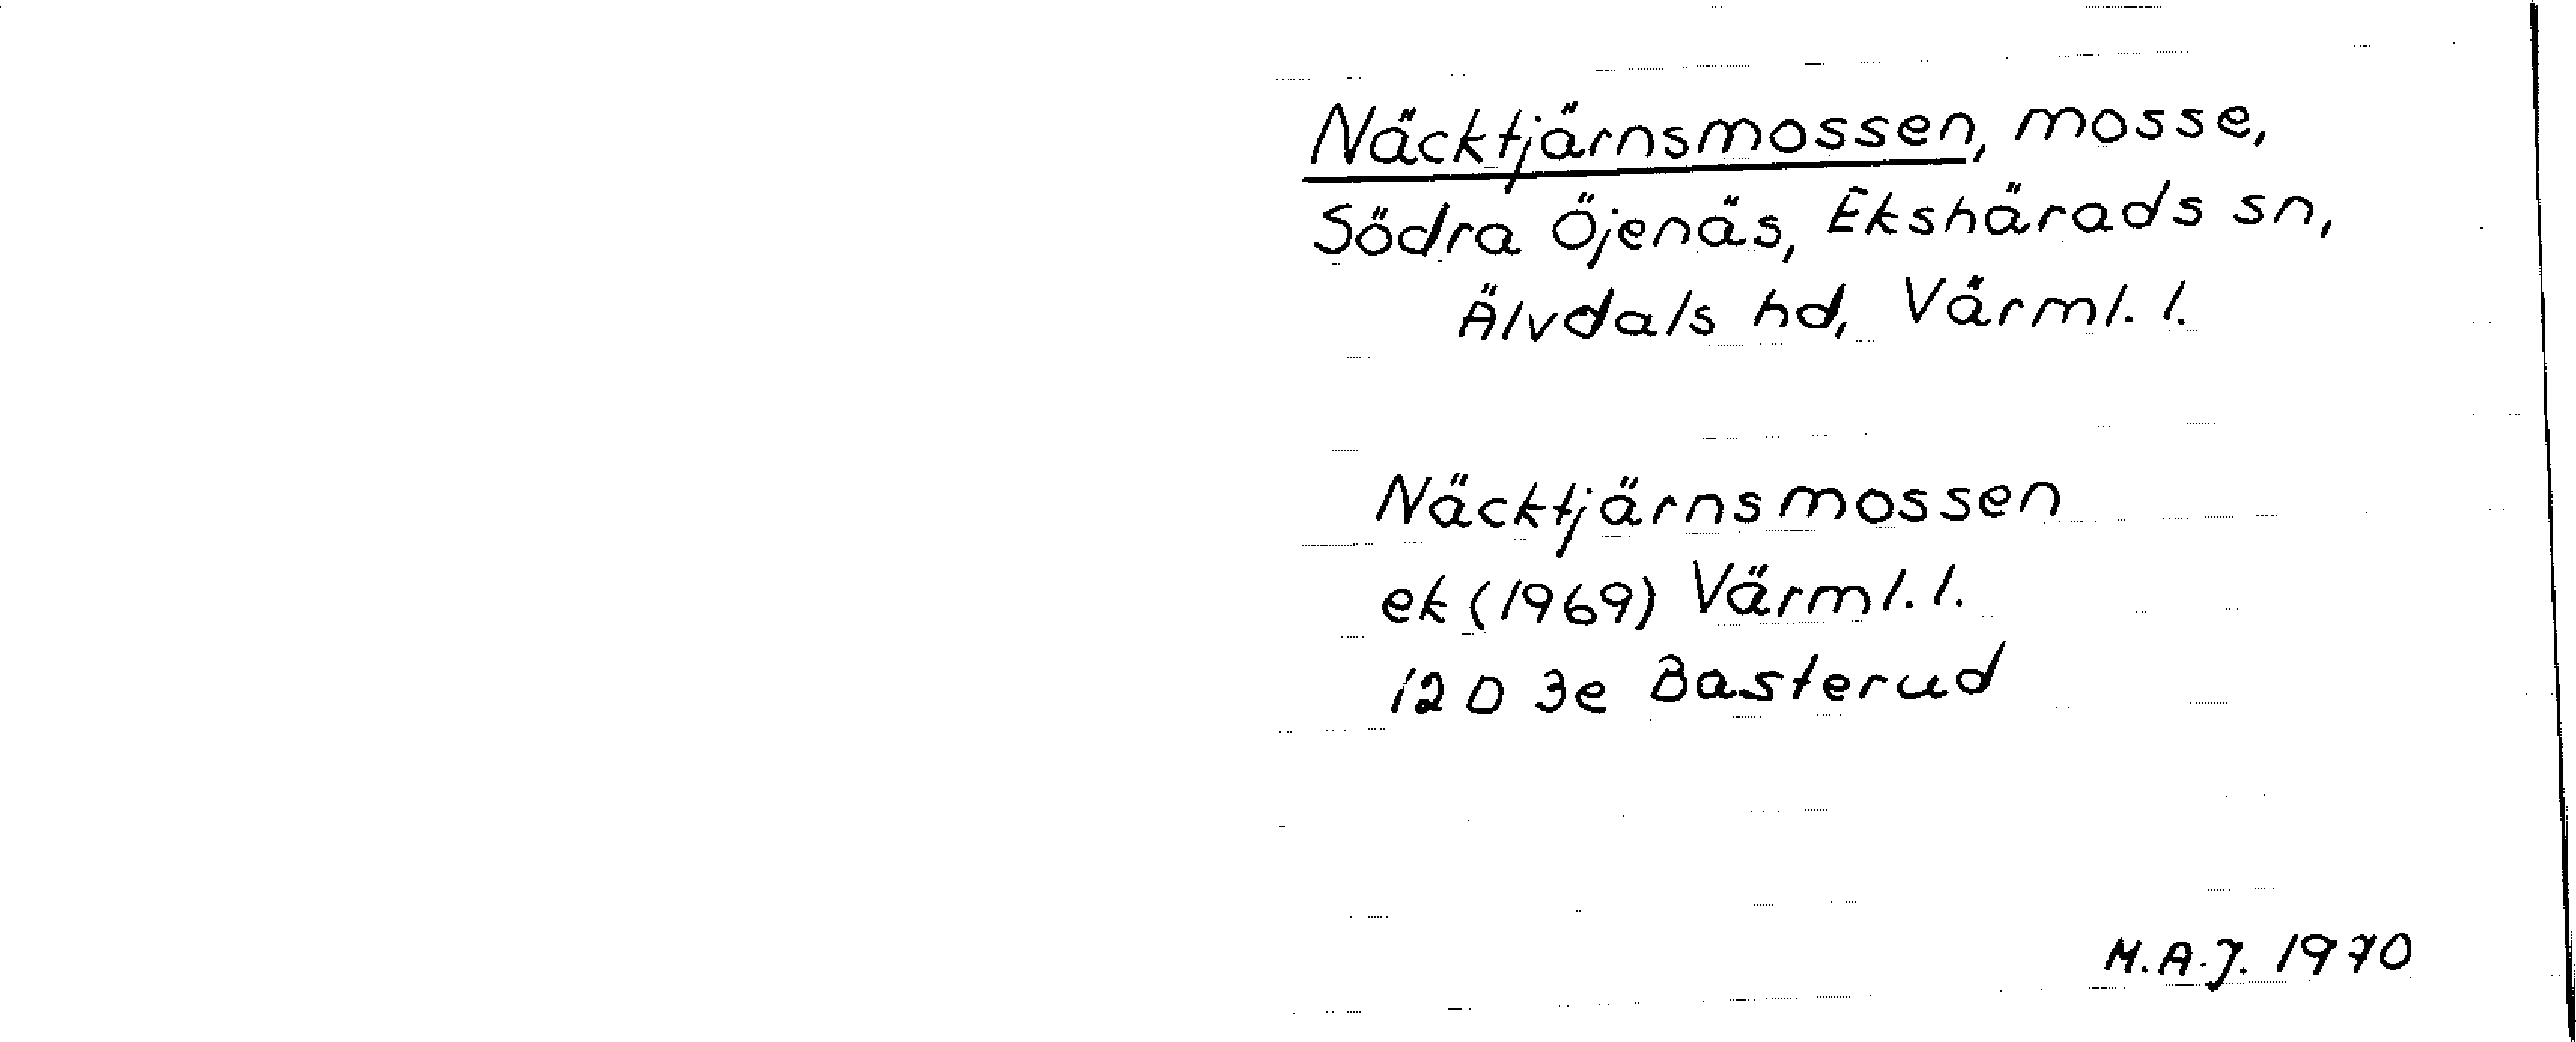 Näcktjärnsmossen, mosse,
Södra Öjenäs, Ekshärads sn,
Älvdals hd, Värml. l.
Näcktjärnsmossen
ek (1969) Värml. l.
12 D 3e Basterud
M.A.J. 1970